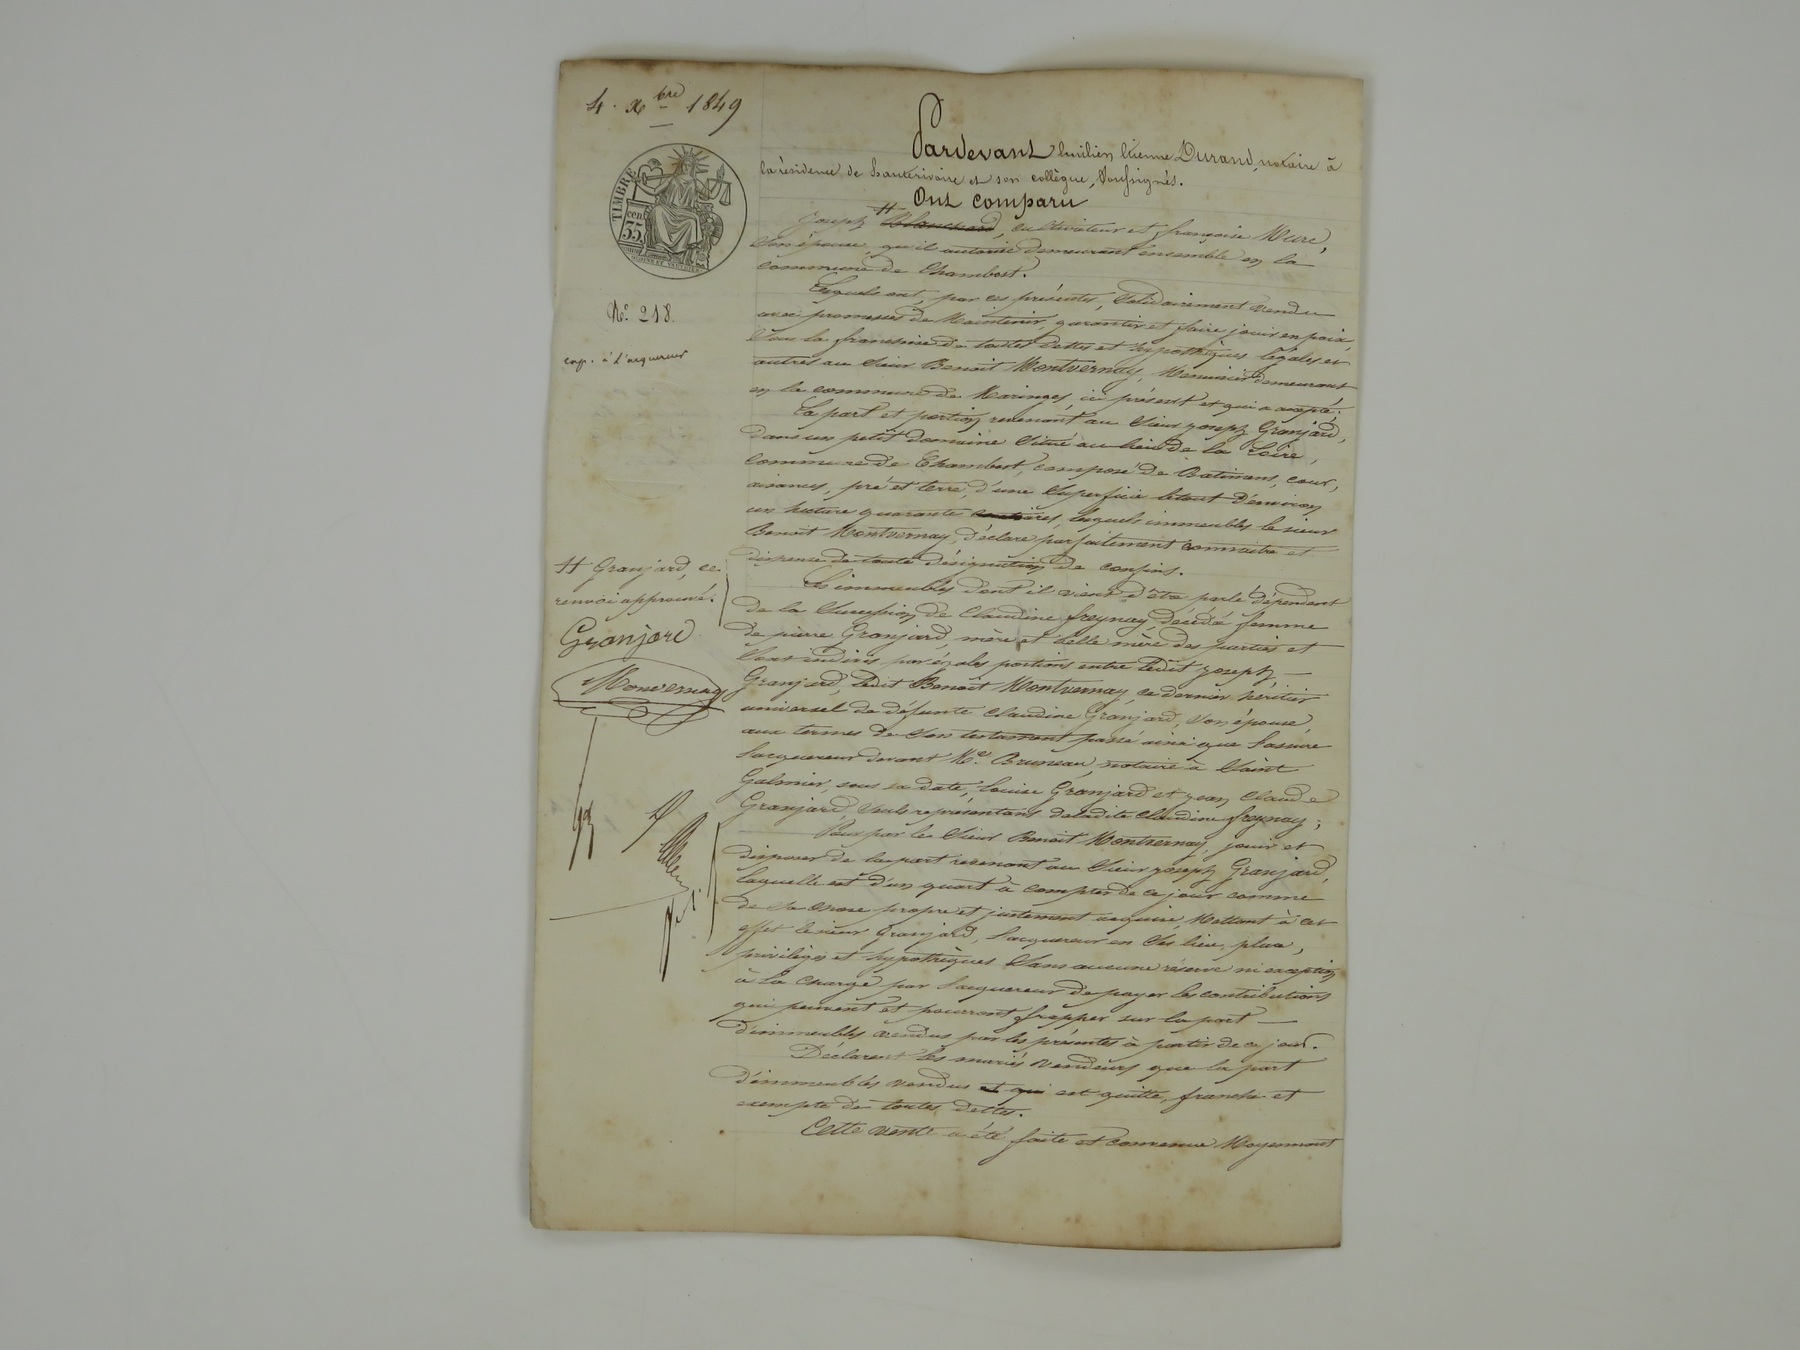 4. Xbre 1849
TIMBRE
35 cen.
No. 218.
exp. à l'acquereur
Pardevant Emilien Etienne Durand, notaire à
la résidence de Hauterivoire et son collègue, Soussignés.
Ont comparu
Joseph # Blanchard, cultivateur et françoise Muré,
Son épouse, qu'il autorise demeurant ensemble en la
commune de Chambost.
Lesquels ont, par ces présentes, Solidairement vendu
avec promesses de Maintenir, garantir et faire jouir en paix,
Sous la franchise de toutes dettes et hypothèques légales et
autres au Sieur Benoit Montvernay, Menuisier demeurant
en la commune de Maringes, ici présent et qui a accepté;
La part et portion revenant au Sieur joseph Granjard,
dans un petit domaine Situé au lieu de la Loire,
commune de Chambost, composé de Batimens, cour,
aisances, pré et terre, d'une Superficie letout D'environ
un hectare quarante centiares, lesquels immeubles le sieur
Benoit Montvernay, déclare parfaitement connaitre et
dispense de toute désignation de confins.
Les immeubles dont il vient d'être parlé dépendent
de la Succession de Claudine freynay, décédé femme
de pierre Granjard, mère et belle mère des parties et
Sont indivis par égales portions entre ledit joseph
Granjard, ledit Benoît Montvernay, ce dernier héritier
universel de défunte Claudine Granjard, Son épouse,
aux termes de Son testament passé ainsi que l'assure
l'acquereur devant Me. Bruneau, notaire à Saint
Galmier, sous sa date, Louise Granjard et jean Claude
Granjard, Seuls représentans de ladite Claudine freynay;
Pour par le Sieur Benoit Montvernay, jouir et
disposer de la part revenant au Sieur joseph Granjard,
laquelle est d'un quart à compter de ce jour comme
de Sa chose propre et justement acquise, Mettant à cet
effet le sieur Granjard, l'acquereur en Ses lieu, place,
privilèges et hypothèques Sans aucune réserve ni exception
à la charge par l'acquereur de payer les contributions
qui peuvent et pourront frapper sur la part
d'immeubles vendus par les présentes à partir de ce jour.
Déclarent les mariés vendeurs que la part
d'immeubles vendus et qui est quitte, franche et
exempte de toutes dettes.
Cette vente a été faite et convenue Moyennant
# Granjard, ce
renvoi approuvé.
Granjard
Monvernay